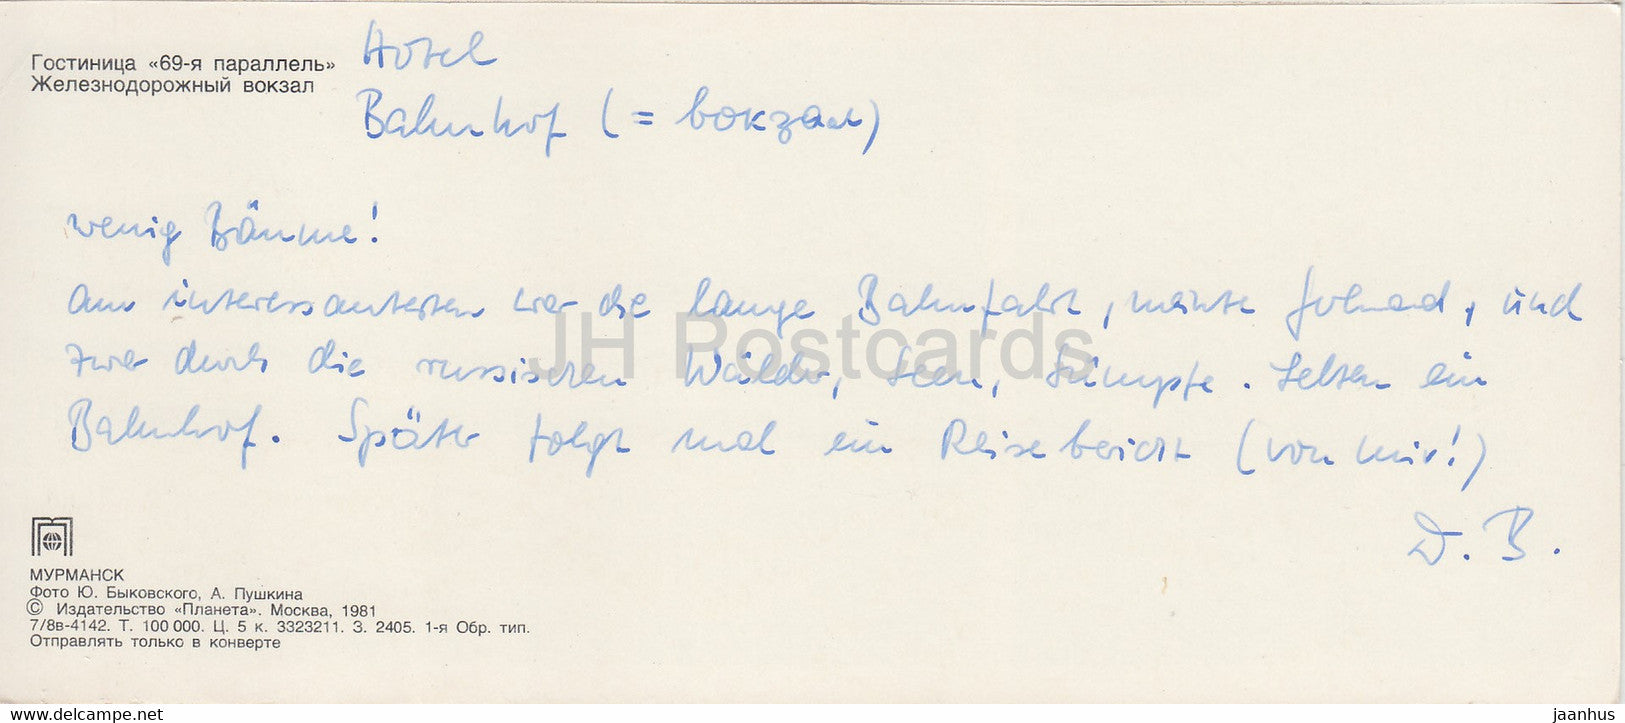 Гостиница «69-я параллель»
Железнодорожный вокзал
Hotel
Bahnhof (= вокзал)
wenig Bäume!
Am interessantesten war die lange Bahnfahrt, und
zwar durch die russischen Wälder, Seen, Sümpfe. Selten ein
Bahnhof. Später folgt mal ein Reisebericht (von mir!)
D. B.
JH Postcards
МУРМАНСК
Фото Ю. Быковского, А. Пушкина
© Издательство «Планета». Москва, 1981
7/8в-4142. Т. 100 000. Ц. 5 к. 3323211. З. 2405. 1-я Обр. тип.
Отправлять только в конверте
www.delcampe.net
jaanhus